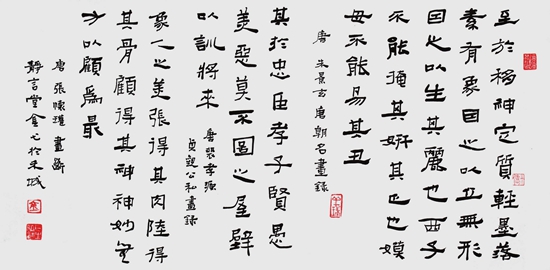 至於移神定質輕墨落
素有象因之以立無形
因之以生其麗也西子
不能掩其妍其正也嫫
母不能易其丑
唐 朱景玄 唐朝名畫錄
其於忠臣孝子賢愚
美惡莫不圖之屋壁
以訓將來
唐裴孝源
貞觀公私畫錄
象人之美張得其肉陸得
其骨顧得其神神妙無
方以顧爲最
唐 張懷瓘 畫斷
靜言堂金 於禾城